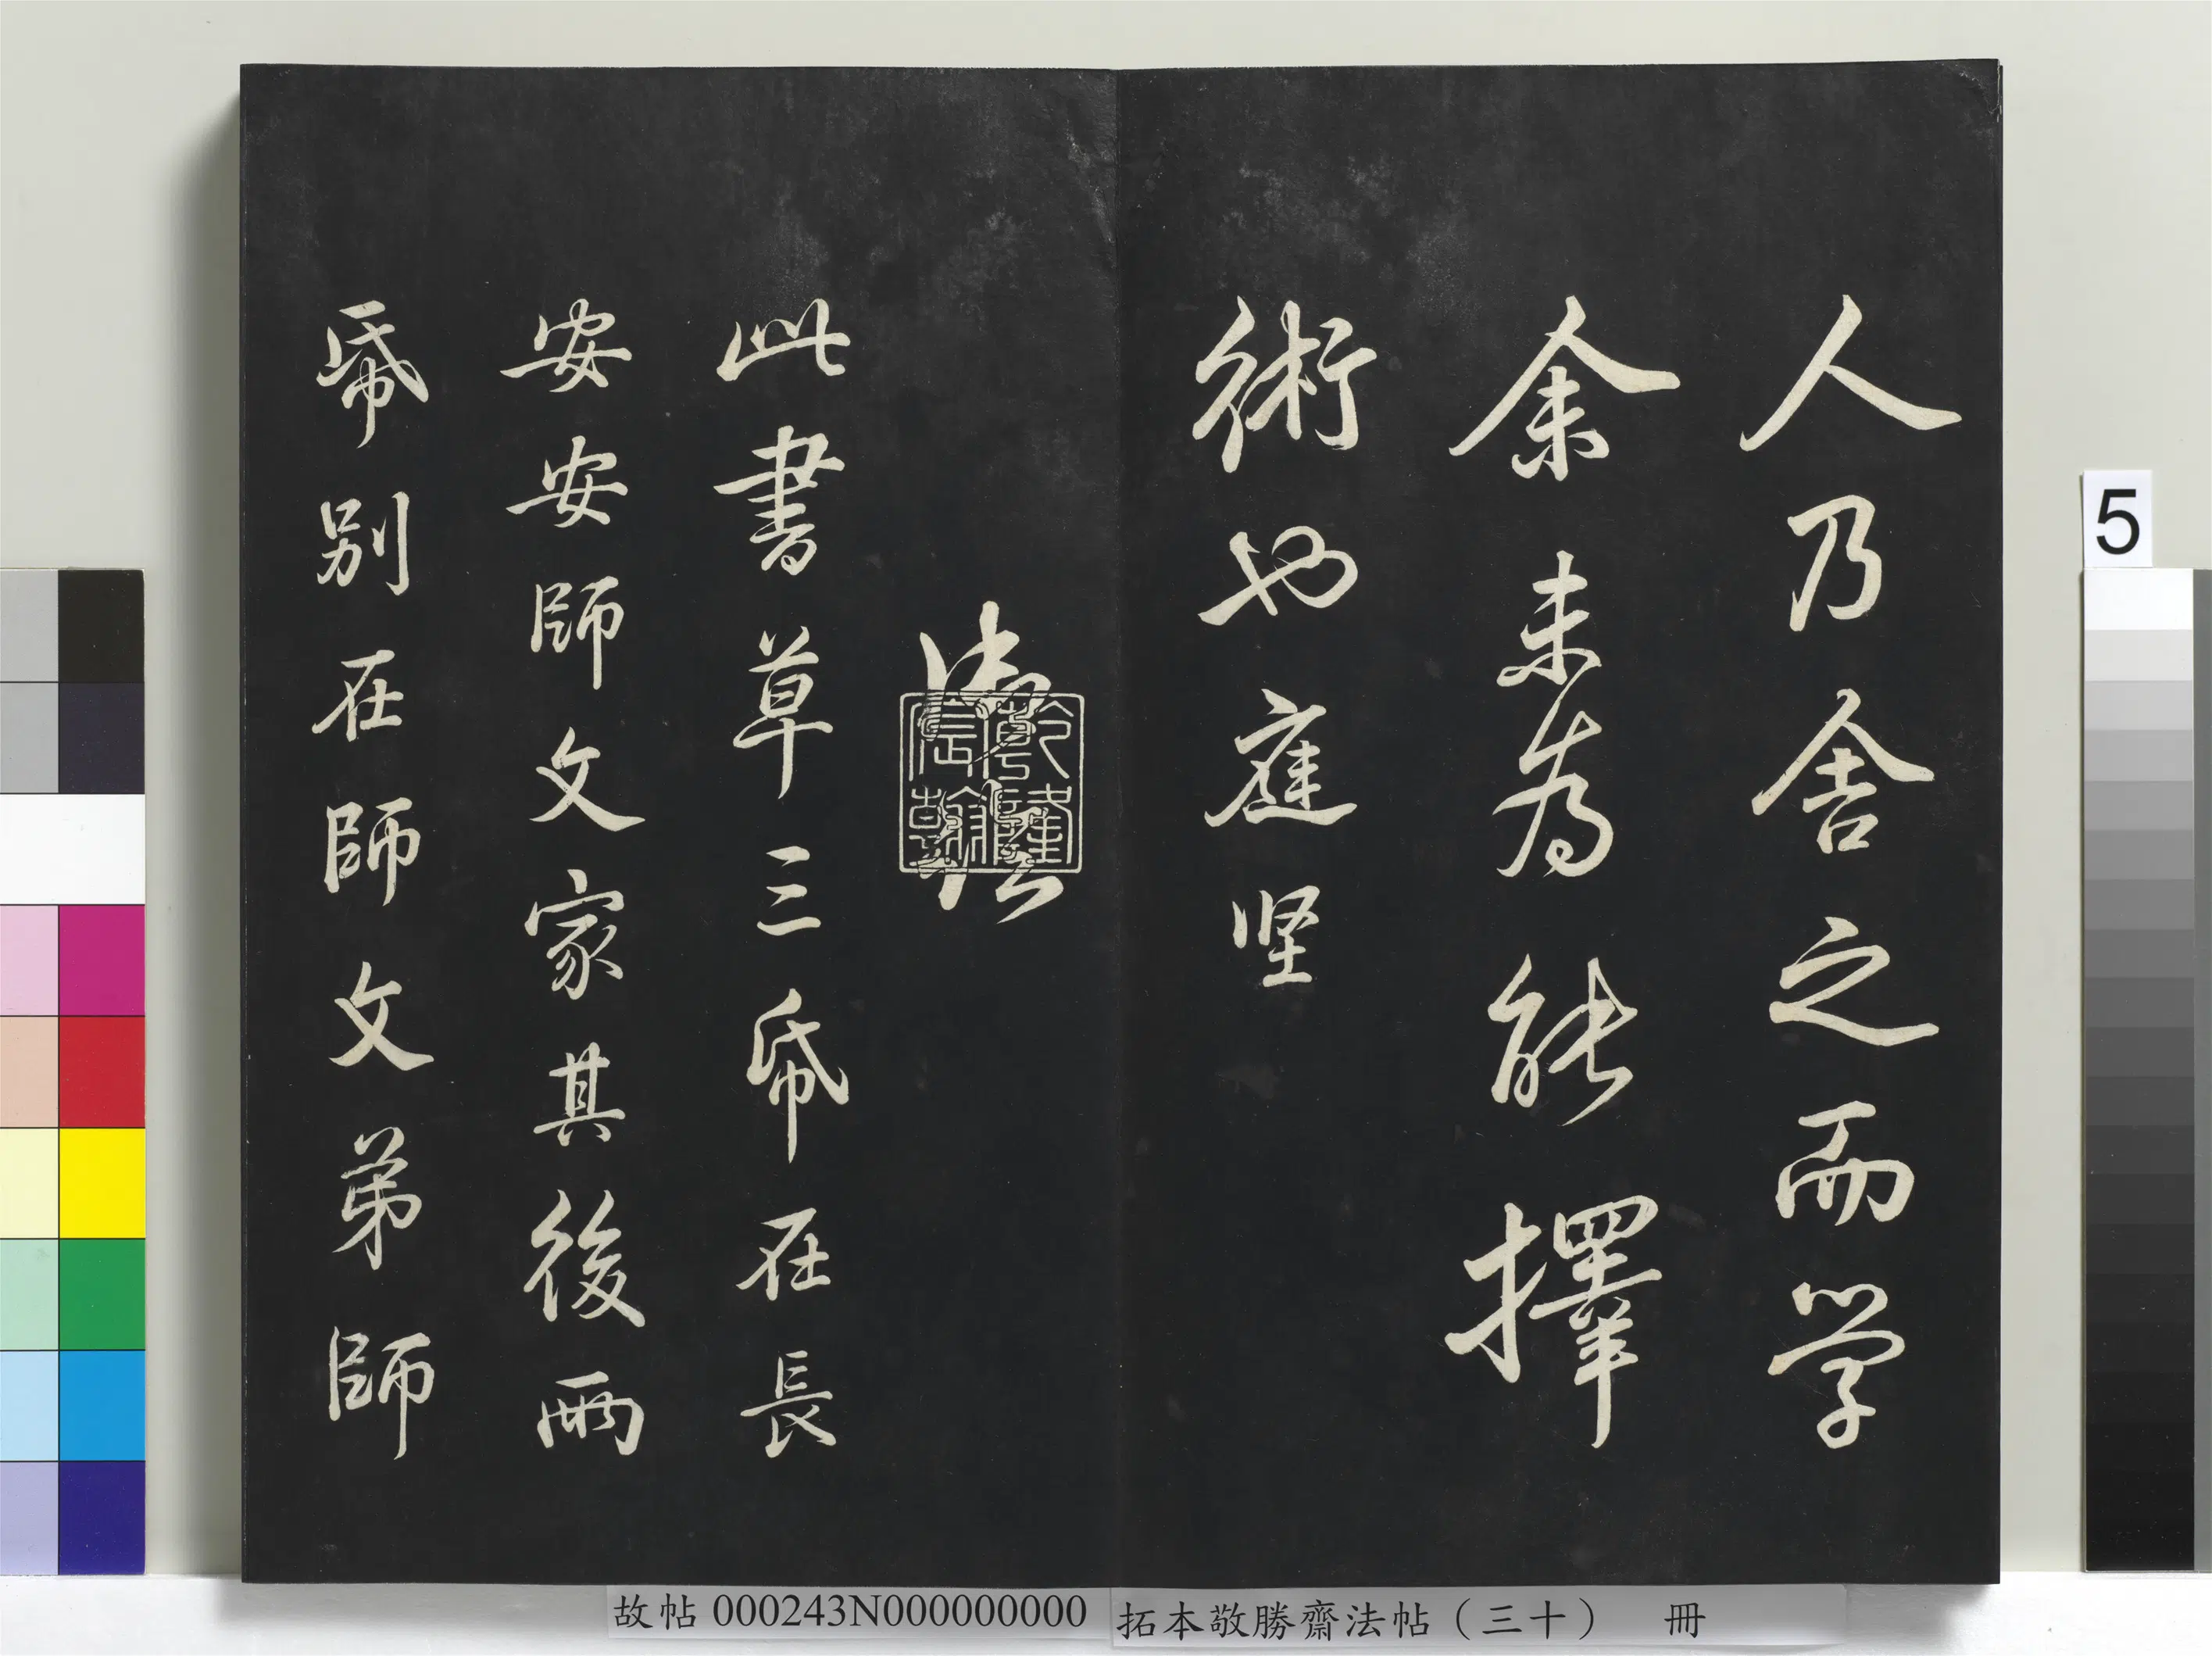 人乃舍之而学
余未为能擇
術也庭坚
御法
乾隆宸翰
此書草三帋在長
安安師文家其後兩
帋別在師文弟師
5
故帖 000243N000000000
拓本敬勝齋法帖（三十） 冊